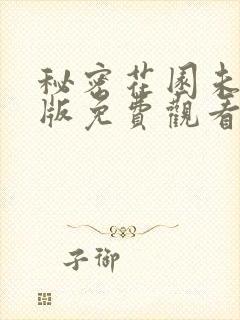 秘密花園未
版免費觀看
子御